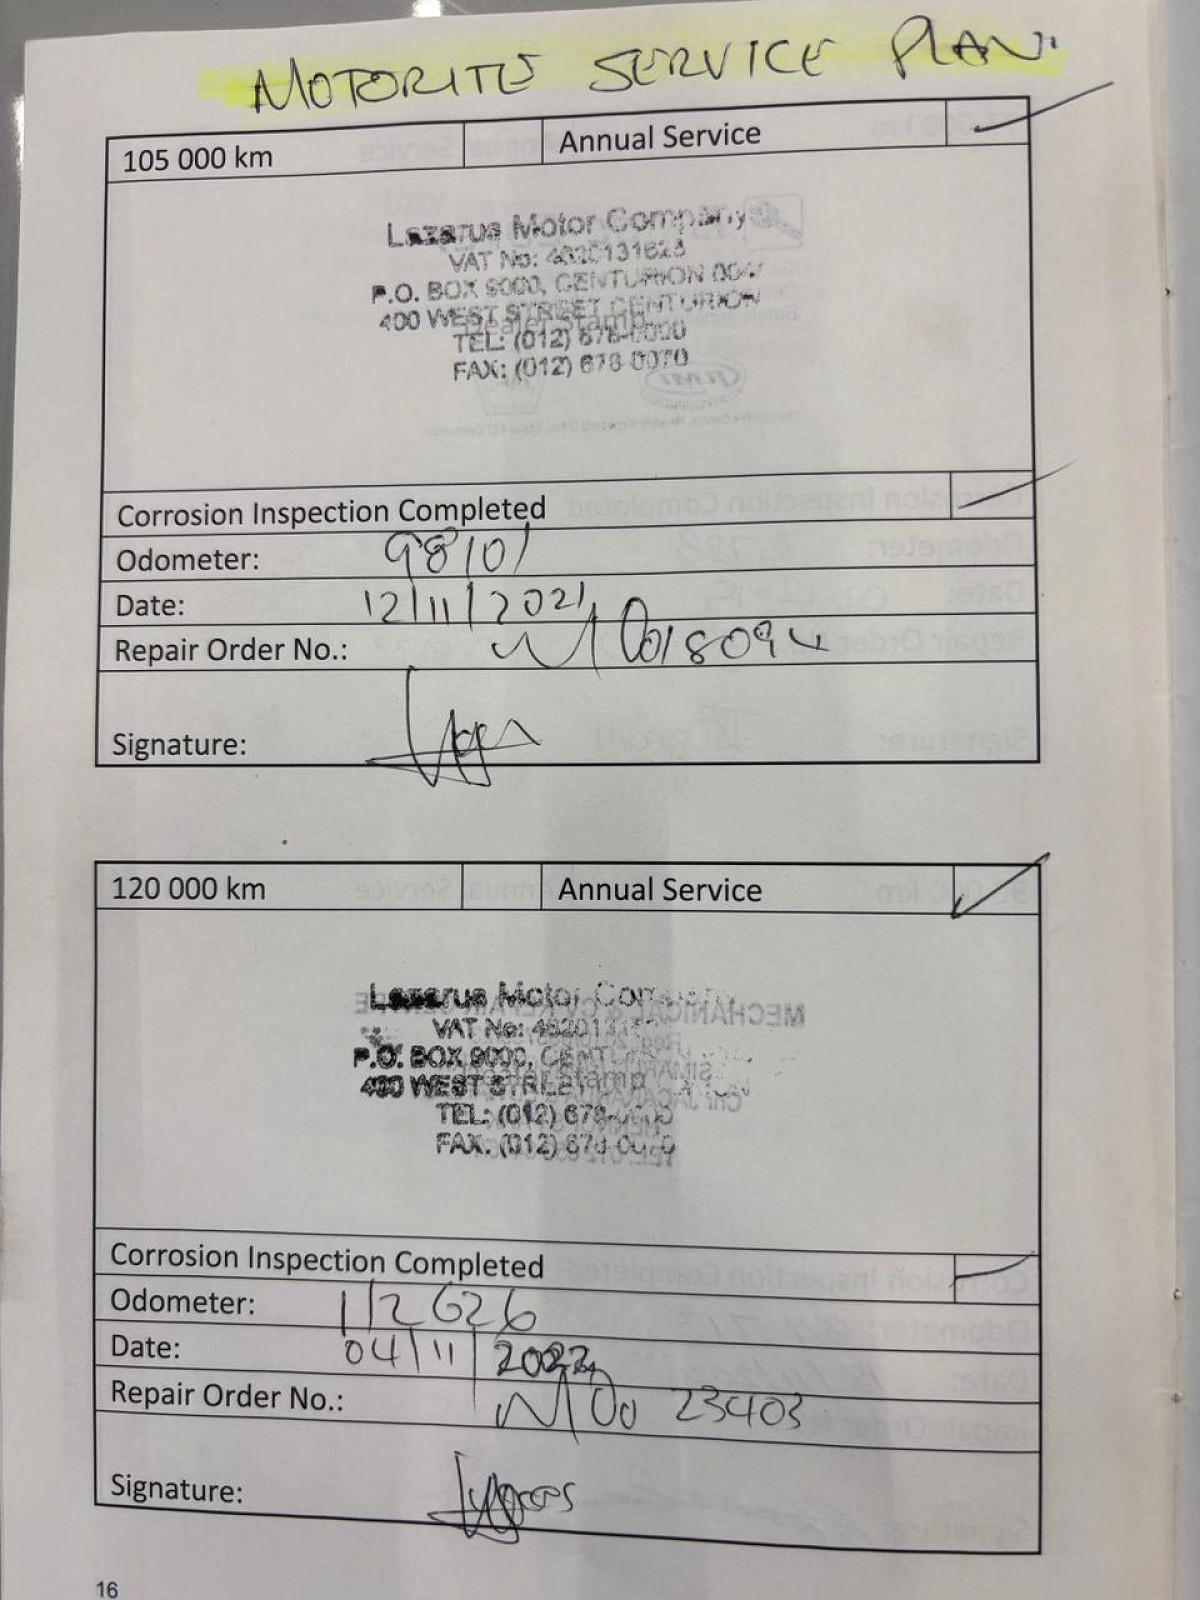 MOTORITE SERVICE PLAN.
105 000 km Annual Service
Lazarus Motor Company
VAT No: 4820131623
P.O. BOX 9000, CENTURION
400 WEST STREET CENTURION
Dealer Stamp
TEL: (012) 678-0000
FAX: (012) 678 0070
Corrosion Inspection Completed
Odometer: 98101
Date: 12/11/2021
Repair Order No.: 018094
Signature:
120 000 km Annual Service
Lazarus Motor
VAT No:
P.O. BOX 9000,
400 WEST
Stamp
TEL: (012) 678
FAX. (012) 678
Corrosion Inspection Completed
Odometer: 112626
Date: 04/11/2022
Repair Order No.: 23403
Signature:
16